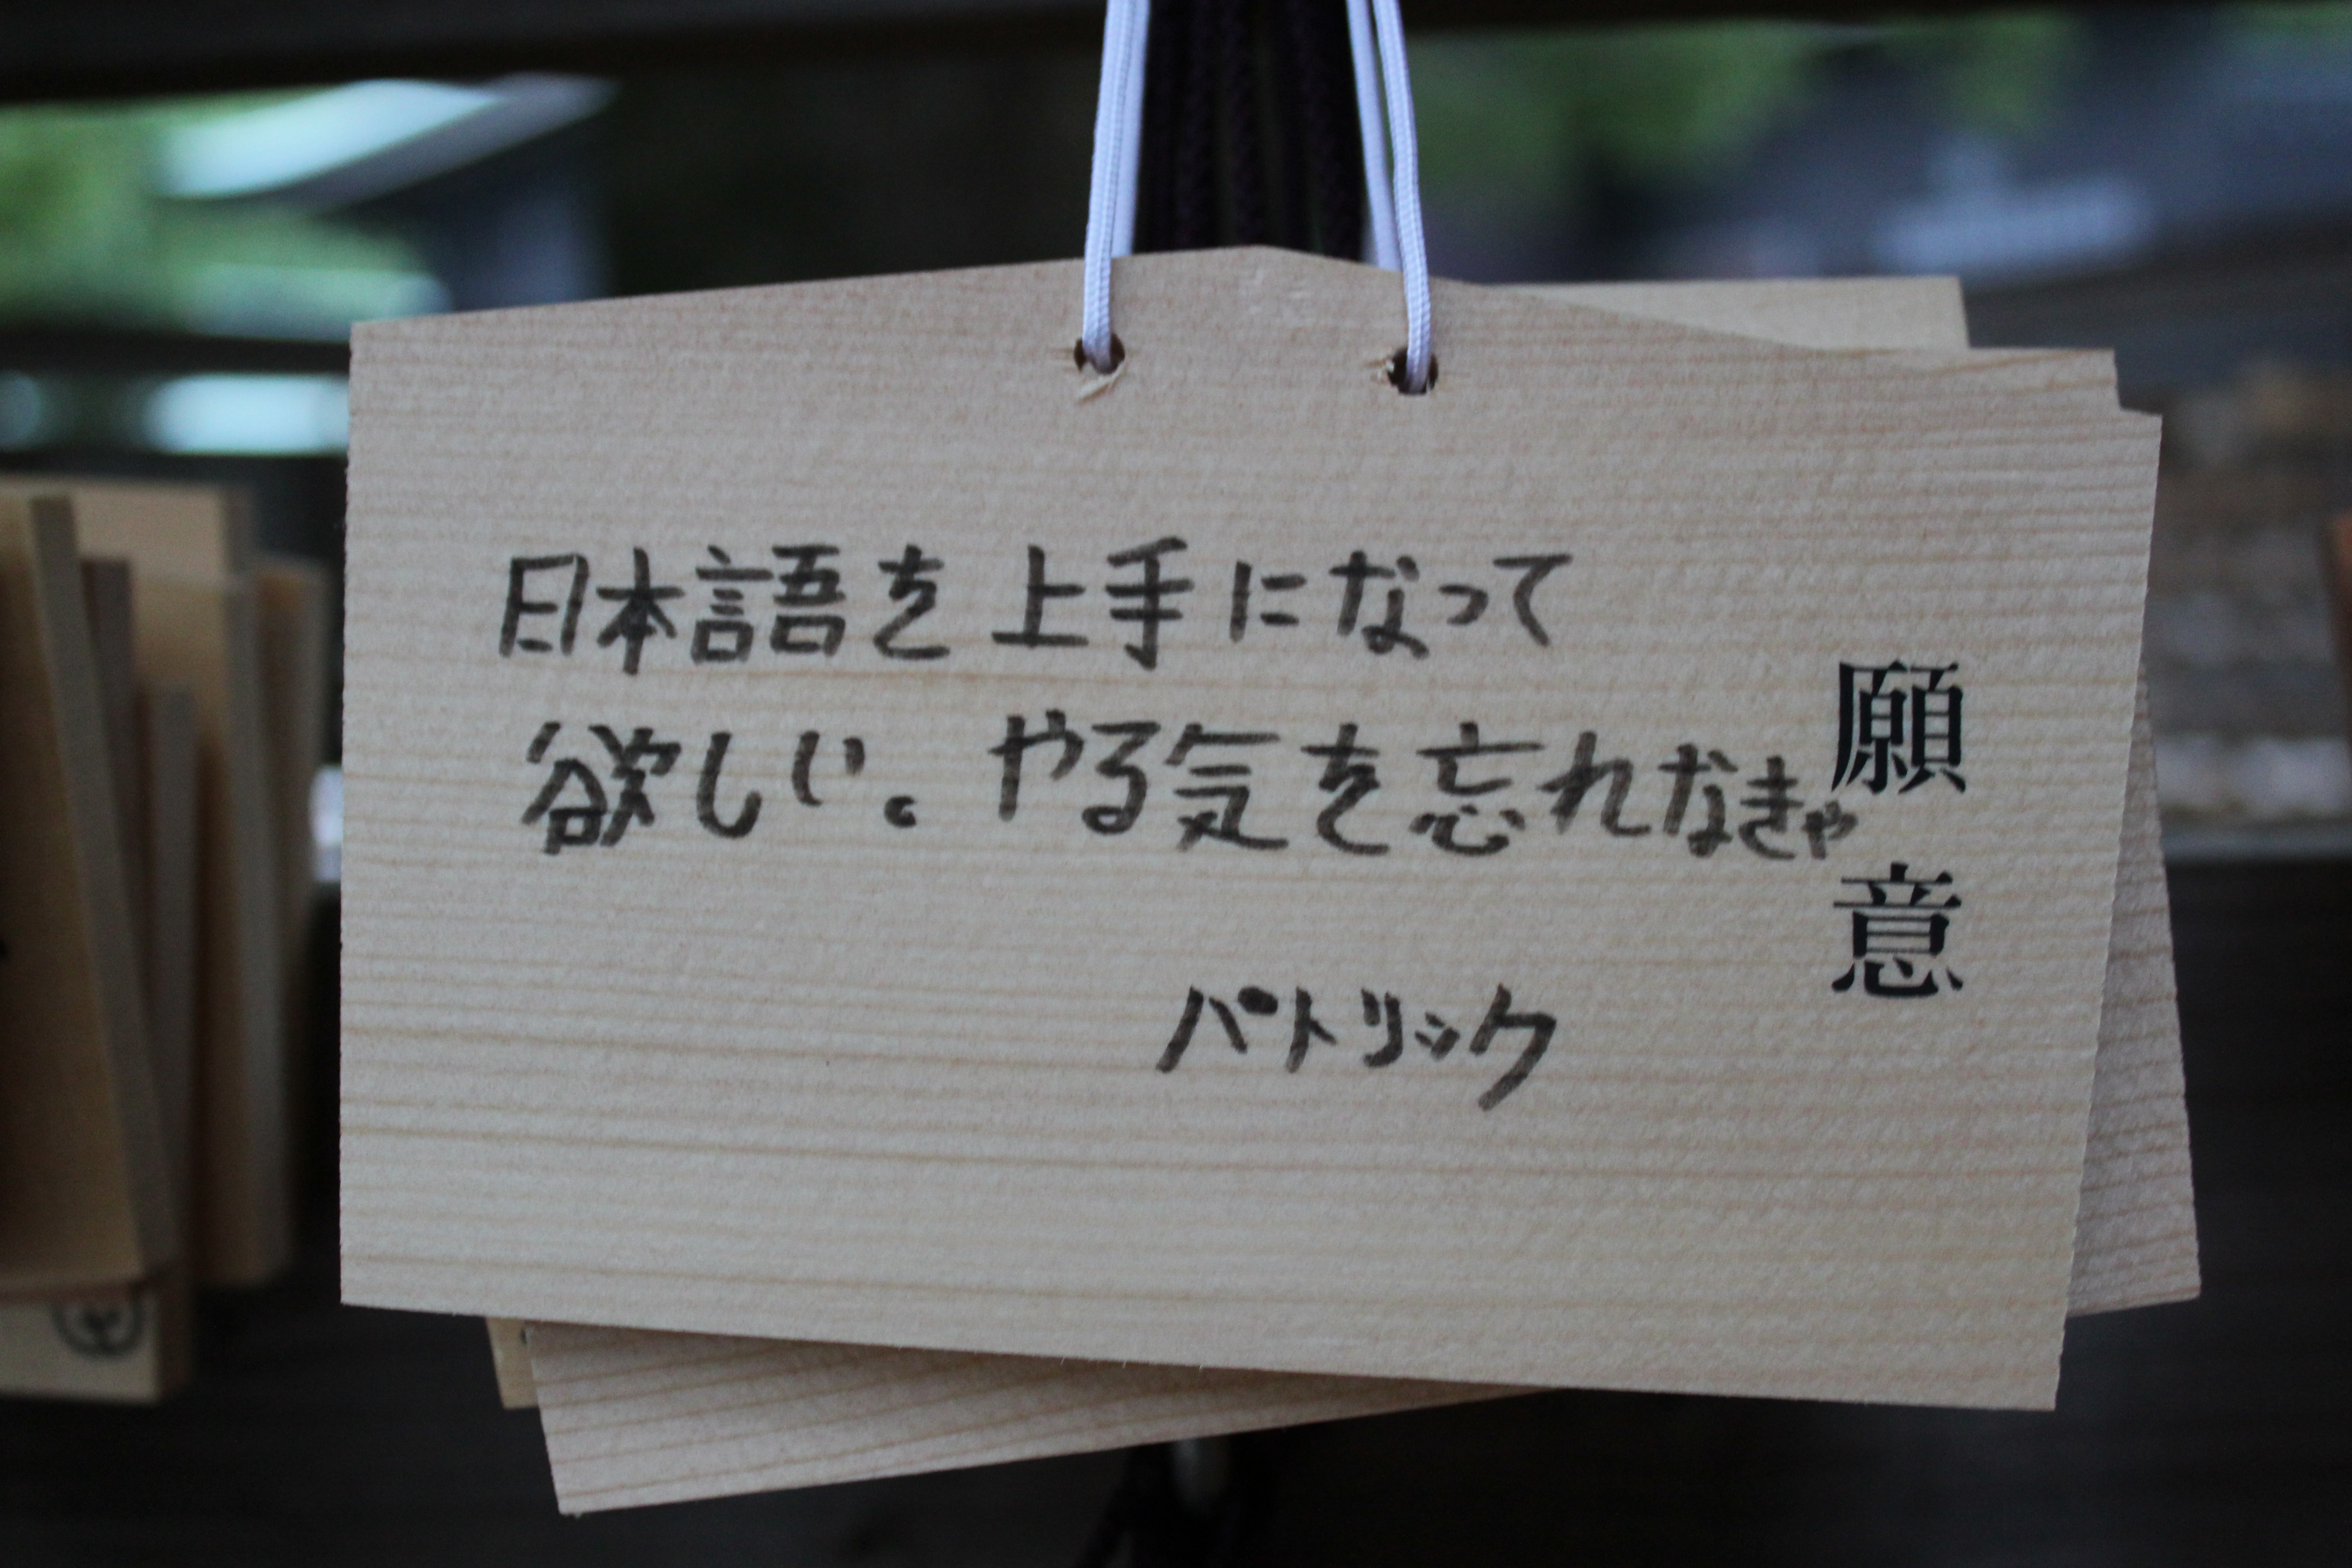 日本語を上手になって
欲しい。やる気を忘れなきゃ
パトリック
願意